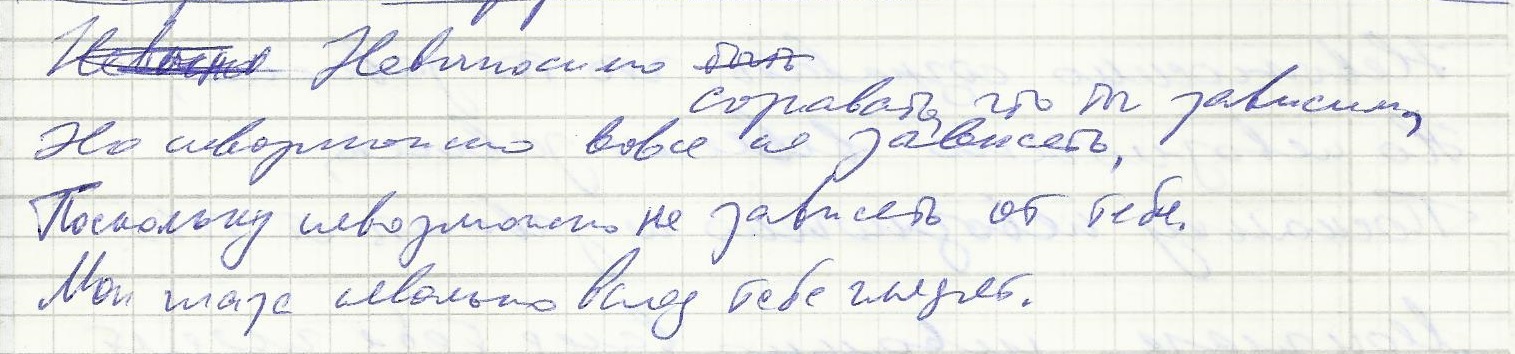 Невыносимо быть
сознавать, что ты зависим,
Но невозможно вовсе не зависеть,
Поскольку невозможно не зависеть от тебя.
Мои глаза невольно вслед тебе глядят.